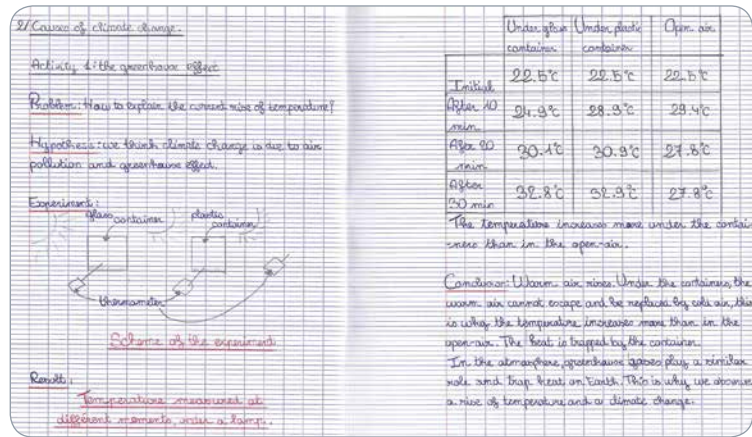 2/ Causes of climate change.
Activity 1: the greenhouse effect
Problem: How to explain the current rise of temperature?
Hypothesis: we think climate change is due to air
pollution and greenhouse effect.
Experiment:
glass container
plastic container
thermometer
Scheme of the experiment
Result:
Temperature measured at
different moments, under a lamp.
Under glass container Under plastic container Open air
Initial 22.5°C 22.5°C 22.5°C
After 10 min 24.9°C 28.9°C 29.4°C
After 20 min 30.1°C 30.9°C 27.8°C
After 30 min 32.8°C 32.9°C 27.8°C
The temperature increases more under the contai-
-ners than in the open-air.
Conclusion: Warm air rises. Under the containers, the
warm air cannot escape and be replaced by cold air, this
is why the temperature increases more than in the
open-air. The heat is trapped by the container.
In the atmosphere, greenhouse gases play a similar
role and trap heat on Earth. This is why we observe
a rise of temperature and a climate change.